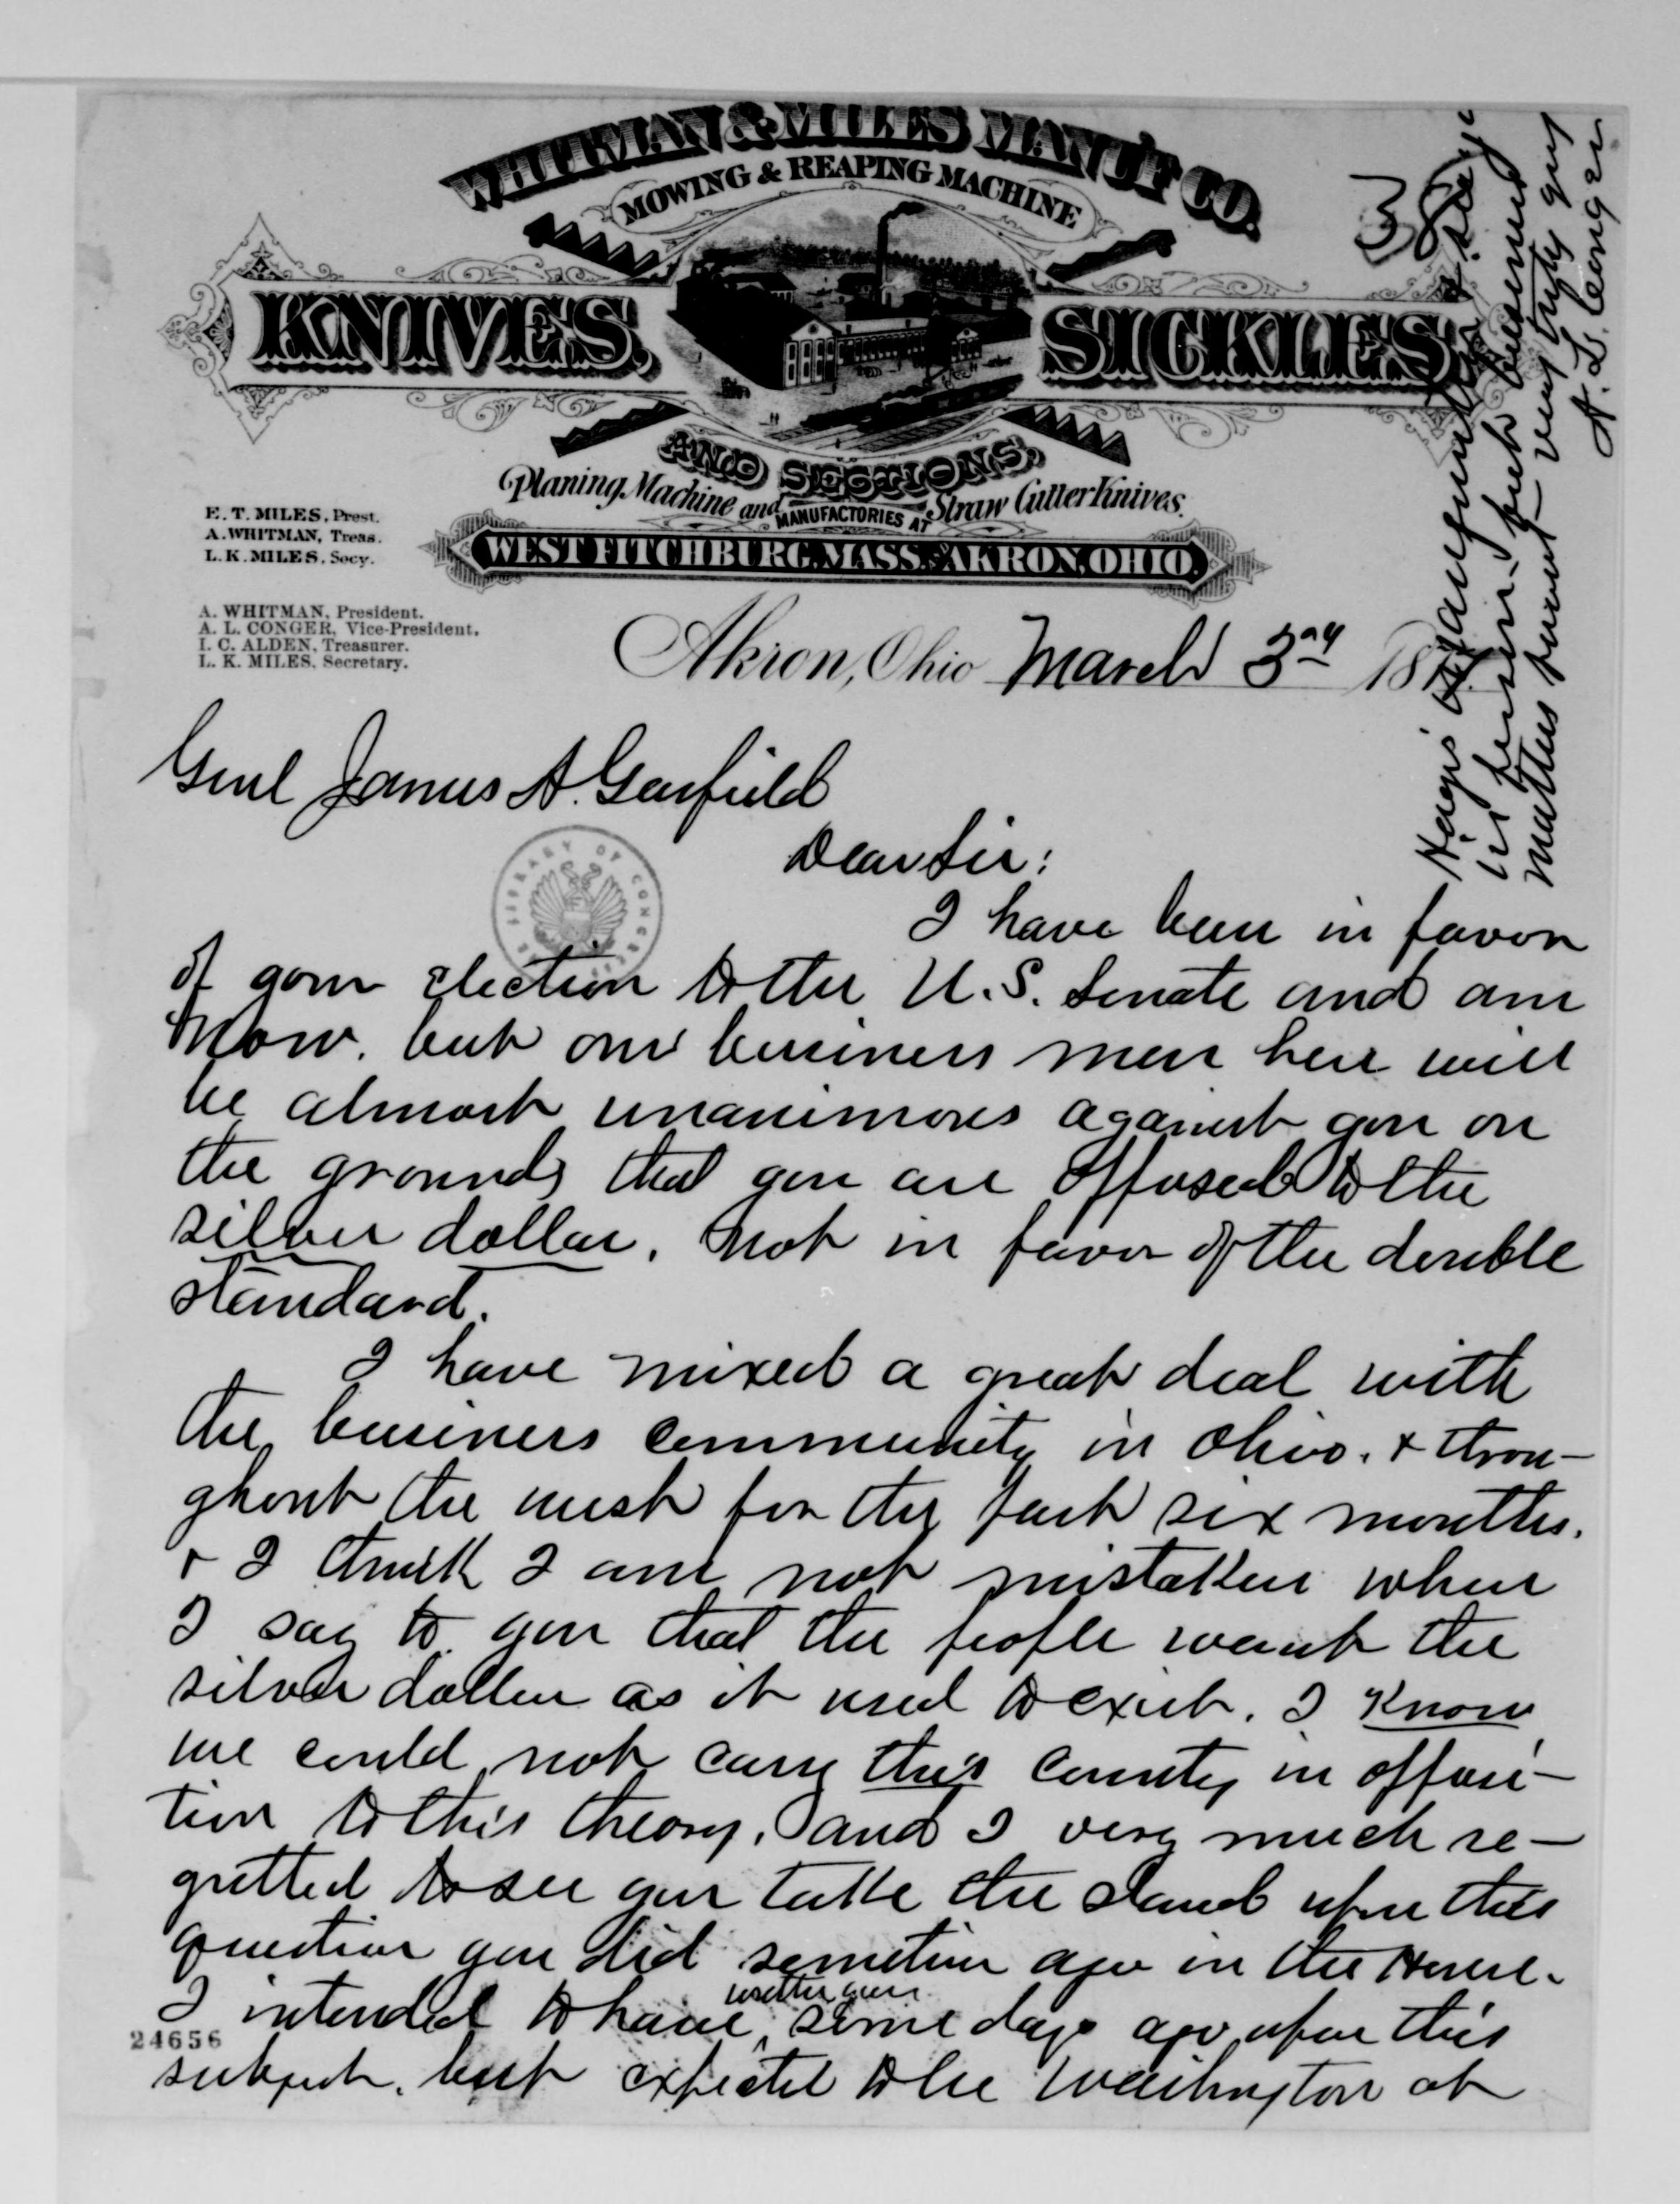 WHITMAN & MILES MANU'F CO.
MOWING & REAPING MACHINE
KNIVES, SICKLES,
AND SECTIONS,
Planing Machine and Straw Cutter Knives.
MANUFACTORIES AT
WEST FITCHBURG, MASS. & AKRON, OHIO.
E. T. MILES, Prest.
A. WHITMAN, Treas.
L. K. MILES, Secy.
A. WHITMAN, President.
A. L. CONGER, Vice-President.
I. C. ALDEN, Treasurer.
L. K. MILES, Secretary.
Akron, Ohio March 3rd 187
Genl James A. Garfield
Dear Sir:
I have been in favor
of your election to the U.S. Senate and am
Now. but our business men here will
be almost unanimous against you on
the grounds that you are opposed to the
silver dollar. Not in favor of the double
standard.
I have mixed a great deal with
the business community in Ohio. & throu-
ghout the west for the past six months.
& I think I am not mistaken when
I say to you that the people want the
silver dollar as it used to exist. I Know
we could not carry this County in opposi-
tion to this theory. and I very much re-
gretted to see you take the stand upon this
question you did sometime ago in the House.
I intended to have written you some days ago upon this
subject. but expected to be Washington at
24656
LIBRARY OF CONGRESS
3
Hays
his
matters very truly yours
A. L. Conger